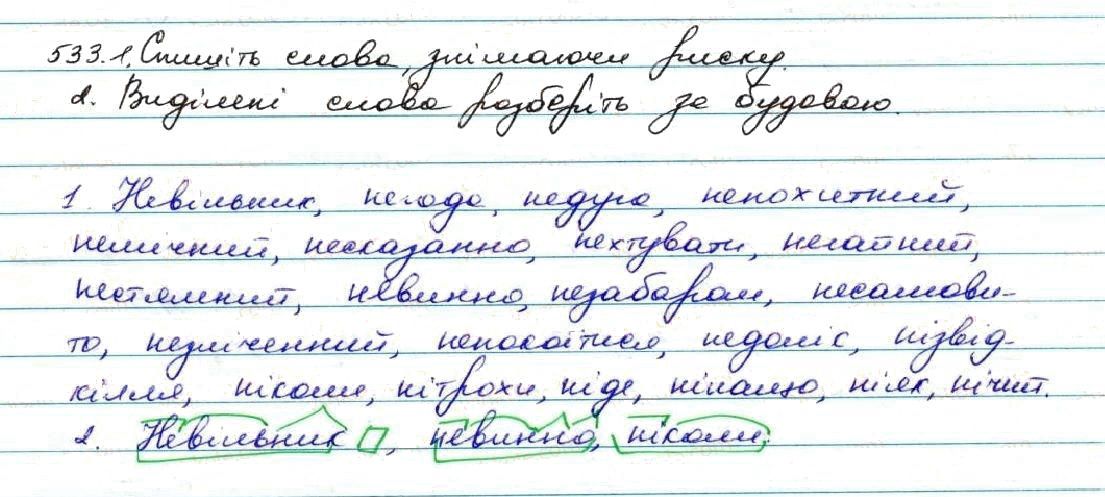 533. 1. Спишіть слова, знімаючи риску.
2. Виділені слова розберіть за будовою.
1. Невільник, негода, недуга, непохитний,
немічний, несказанно, нехтувати, негайний,
нестямний, невинно, незабаром, несамови-
то, незліченний, непокоїтися, недоліс, нізвід-
кілля, ніколи, нітрохи, ніде, нінащо, ніяк, нічий.
2. Невільник, невинно, ніколи.